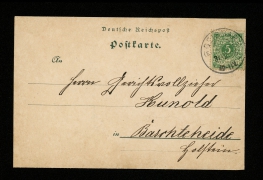 Deutsche Reichspost
Postkarte.
An
Herrn Gerichtsvollzieher
Hunold
in Barghteheide
Holstein.
5